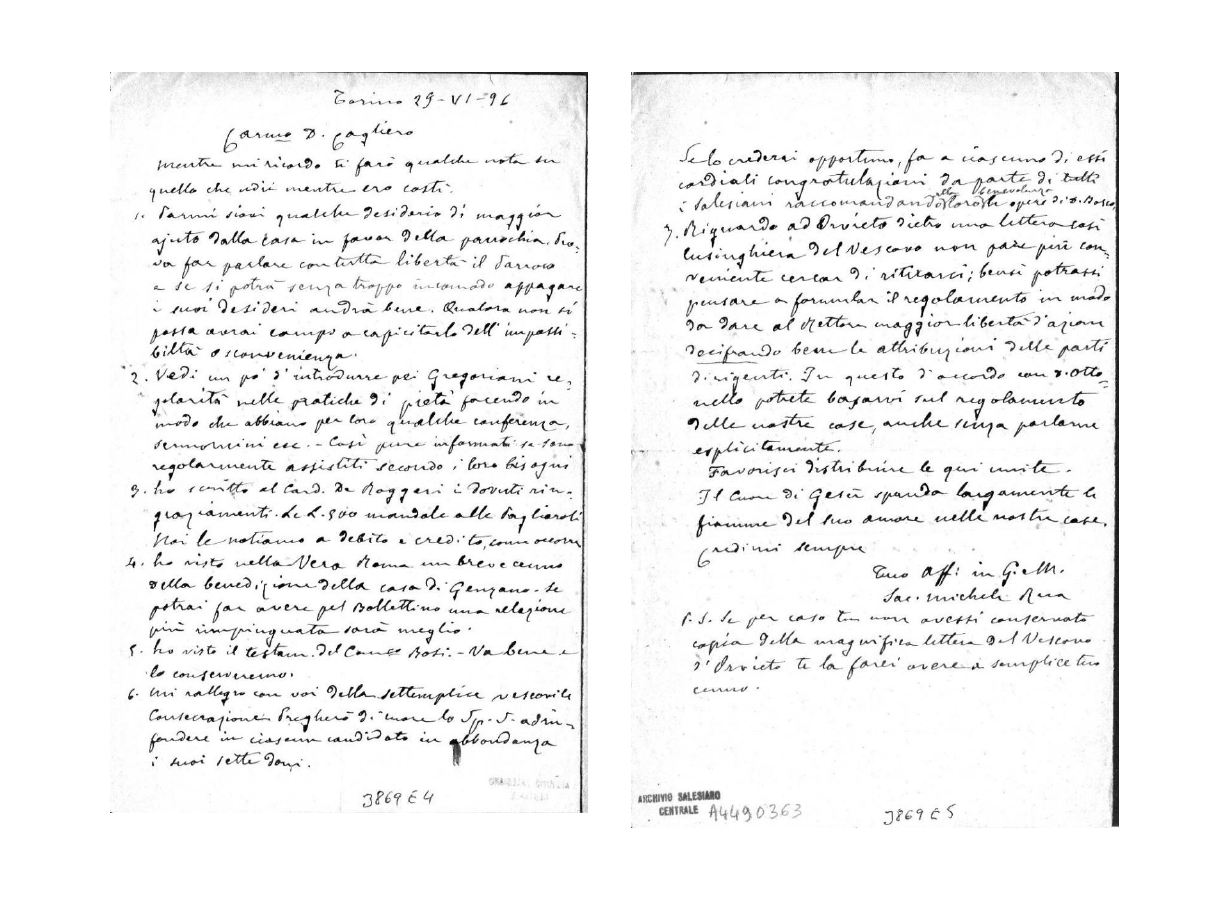 Torino 29-VI-96
Carmo D. Cagliero
Mentre mi ricordo ti farò qualche nota su
quello che udii mentre ero costì.
1. Parmi siavi qualche desiderio di maggior
ajuto dalla casa in favor della parrochia. Pro-
va far parlare con tutta libertà il Parroco
e se si potrà senza troppo incomodo appagare
i suoi desideri andrà bene. Qualora non si
possa avrai campo a capacitarlo dell'impossi-
biltà o sconvenienza.
2. Vedi un po' d'introdurre pei Gregoriani re-
golarità nelle pratiche di pietà facendo in
modo che abbiano per loro qualche conferenza,
sermoncini ecc. - Così pure informati se sono
regolarmente assistiti secondo i loro bisogni
3. ho scritto al Card. De Ruggeri i dovuti rin-
graziamenti. Le L. 500 mandale alle Pagliaroli
Noi le notiamo a debito e credito, come occorre
4. ho visto nella Vera Roma un breve cenno
della benedizione della casa di Genzano. Se
potrai far avere pel Bollettino una relazione
più rimpinguata sarà meglio.
5. ho visto il testam. del Can.co Bosi. - Va bene e
lo conserveremo.
6. Mi rallegro con voi della settemplice vescovile
Consecrazione. Pregherò di cuore lo Sp. S. ad in-
fondere in ciascun candidato in abbondanza
i suoi sette doni.
J869E4
Se lo crederai opportuno, fa a ciascuno di essi
cordiali congratulazioni da parte di tutti
i Salesiani raccomandando alla loro benevolenza le opere di D. Bosco.
7. Riguardo ad Orvieto dietro una lettera così
lusinghiera del Vescovo non pare più con-
veniente cercar di ritirarci; bensì potrassi
pensare a formular il regolamento in modo
da dare al Rettore maggior libertà d'azione
decifrando bene le attribuzioni delle parti
dirigenti. In questo d'accordo con D. Otto-
nello potrete basarvi sul regolamento
delle nostre case, anche senza parlarne
esplicitamente.
Favorisci distribuire le qui unite.
Il Cuore di Gesù spanda largamente le
fiamme del suo amore nelle nostre case.
Credimi sempre
Tuo Aff. in G. e M.
Sac. Michele Rua
P.S. Se per caso tu non avessi conservato
copia della magnifica lettera del Vescovo
d'Orvieto te la farei avere a semplice tuo
cenno.
ARCHIVIO SALESIANO
CENTRALE A4490363
J869E5